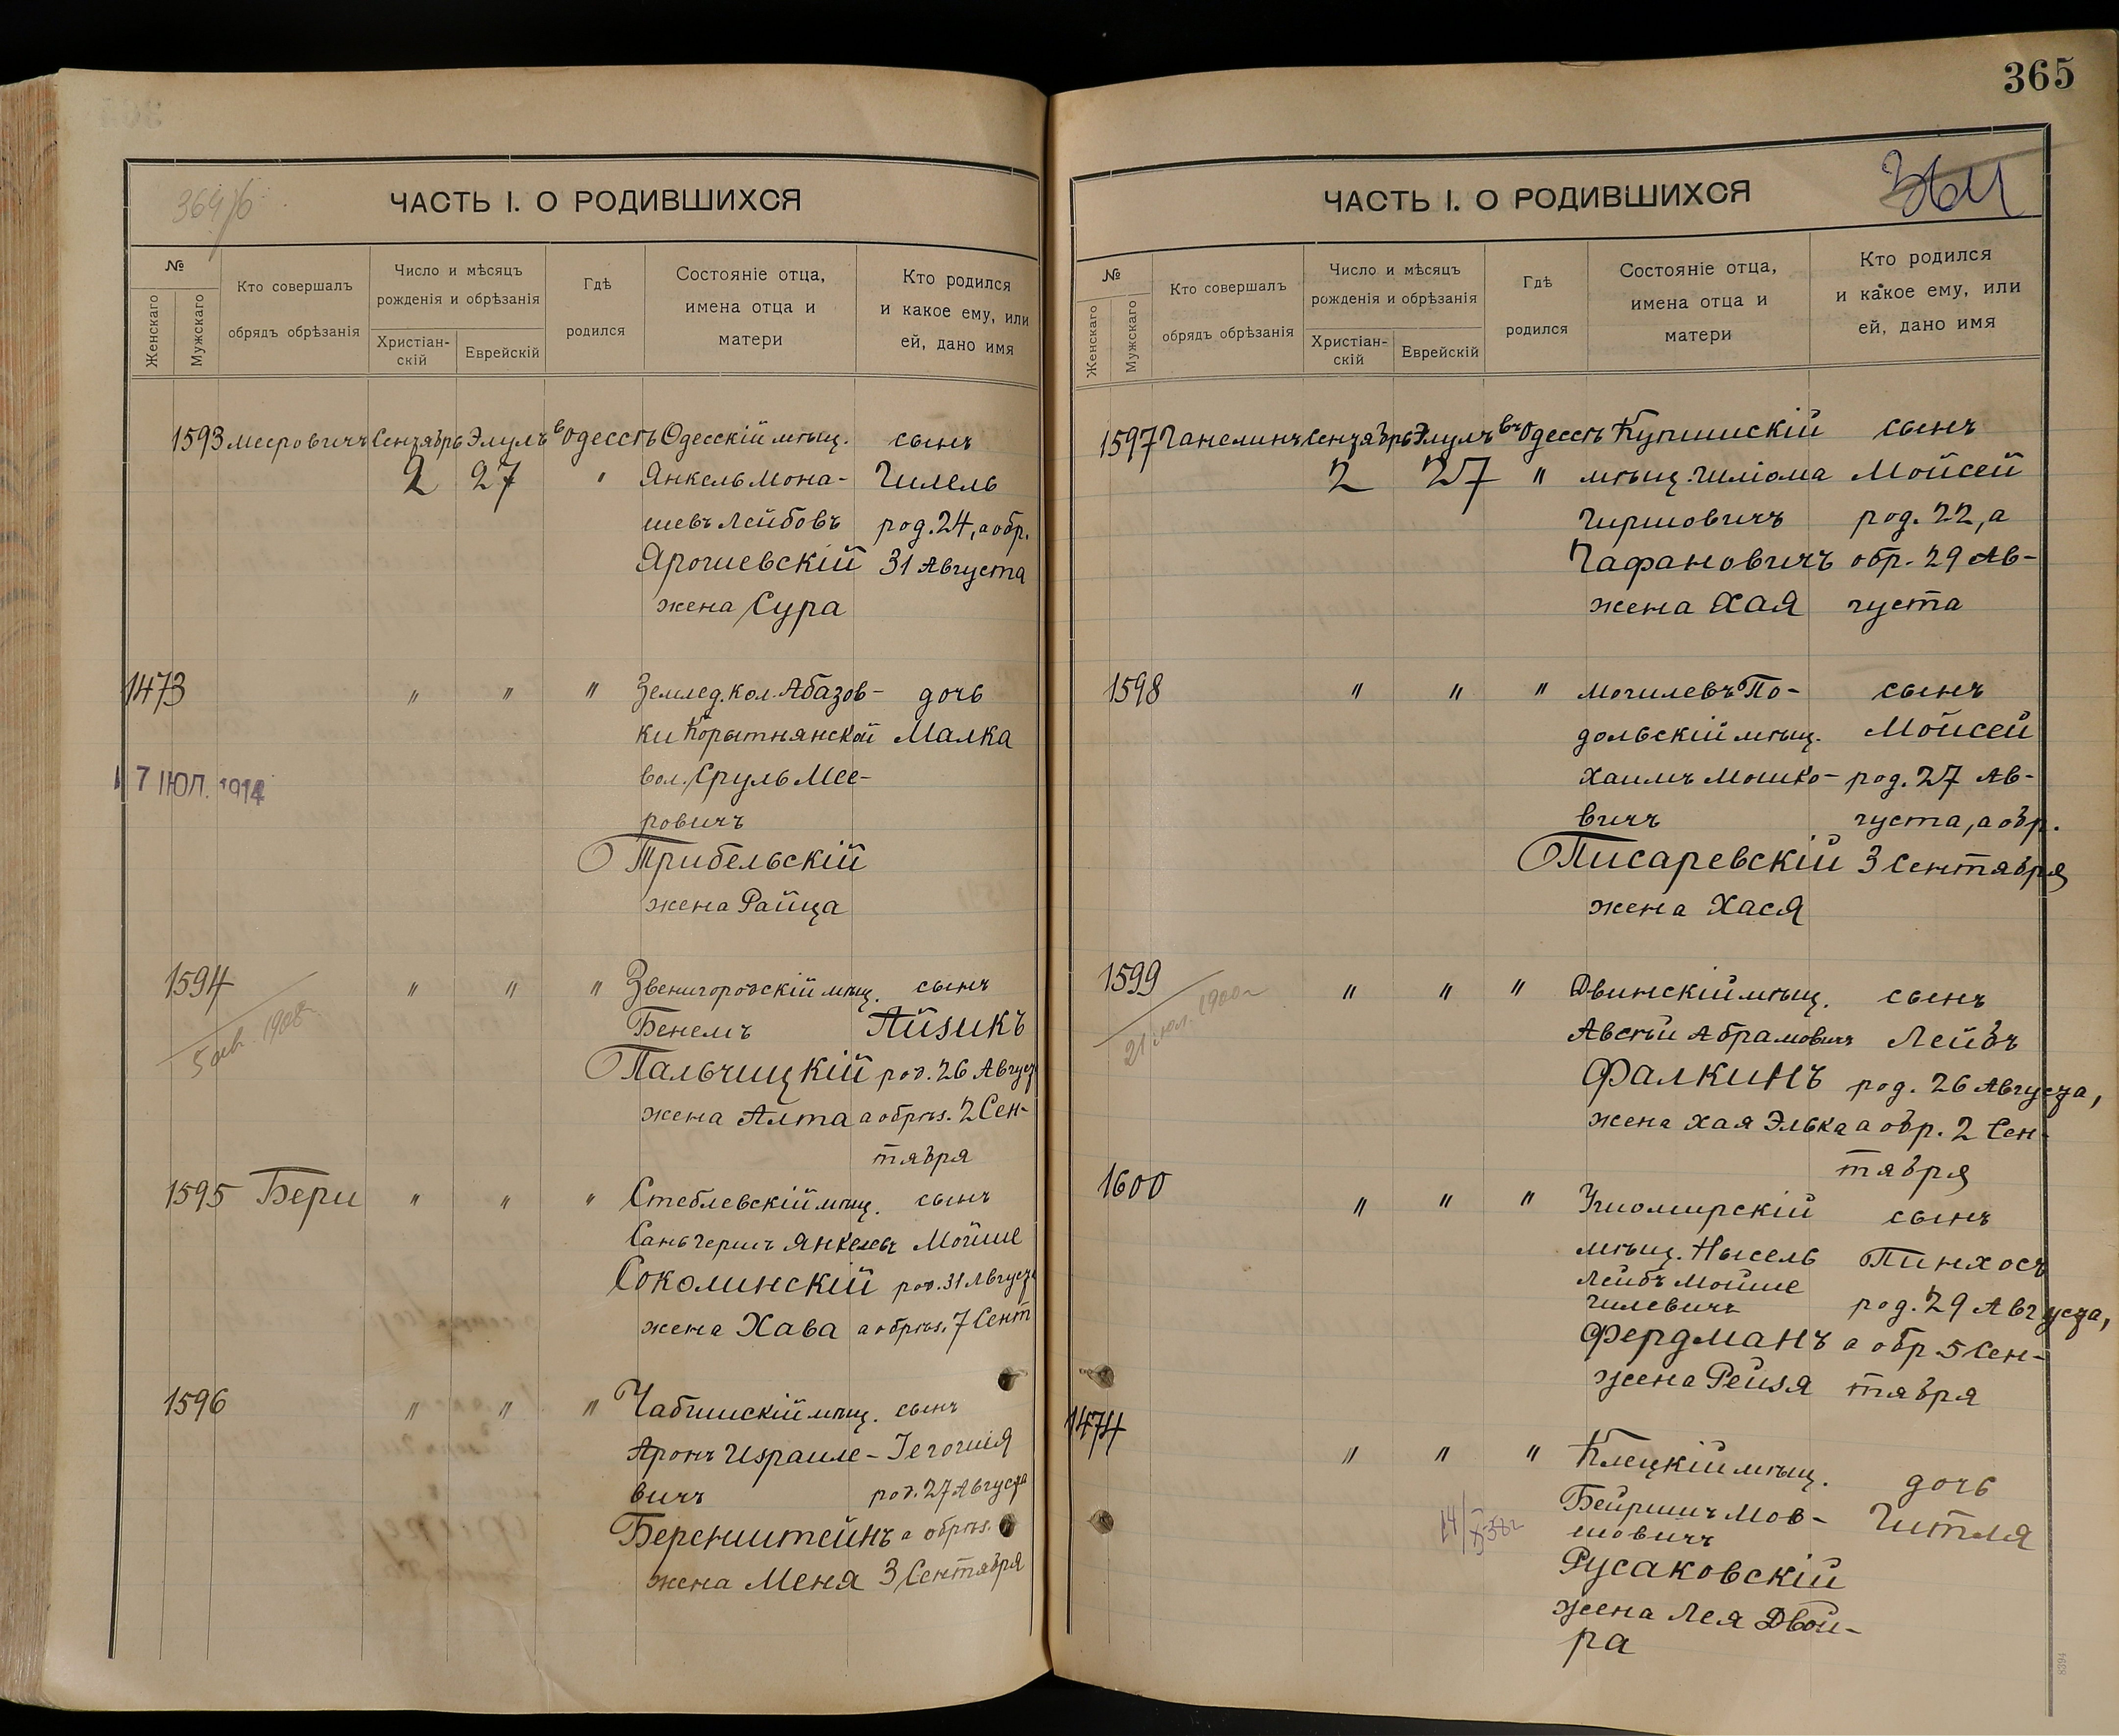 365
364/б
ЧАСТЬ I. О РОДИВШИХСЯ
№
Женскаго
Мужскаго
Кто совершалъ
обрядъ обрѣзанія
Число и мѣсяцъ
рожденія и обрѣзанія
Христіан-
скій
Еврейскій
Гдѣ
родился
Состояніе отца,
имена отца и
матери
Кто родился
и какое ему, или
ей, дано имя
1593 Мееровичъ Сентябрь Элулъ въ Одессѣ Одесскій мѣщ. сынъ
2 27 " Янкель Мона- Гилель
шевъ Лейбовъ род. 24, а обр.
Ярошевскій 31 Августа
жена Сура
1473 " " " Землед. кол. Абазов- дочь
ки Корытнянской Малка
вол. Сруль Мее-
17 ІЮЛ. 1914
ровичъ
Трибельскій
жена Райца
1594 " " " Звенигородскій мѣщ. сынъ
5 1908
Бенемъ Айзикъ
Пальчицкій род. 26 Август
жена Алта а обрѣз. 2 Сен-
тября
1595 Бери " " " Стеблевскій мѣщ. сынъ
Янкелевъ Мойше
Соколинскій род. 31 Август
жена Хава а обрѣз. 7 Сент
1596 " " " мѣщ. сынъ
Аронъ Израиле- Іегошія
вичъ род. 27 Августа
Беренштейнъ а обрѣз.
жена Меня 3 Сентября
ЧАСТЬ I. О РОДИВШИХСЯ
364
№
Женскаго
Мужскаго
Кто совершалъ
обрядъ обрѣзанія
Число и мѣсяцъ
рожденія и обрѣзанія
Христіан-
скій
Еврейскій
Гдѣ
родился
Состояніе отца,
имена отца и
матери
Кто родился
и какое ему, или
ей, дано имя
1597 Ганелинъ Сентябрь Элулъ въ Одессѣ Купишскій сынъ
2 27 " мѣщ. Шліома Мойсей
Гиршовичъ род. 22, а
Гафановичъ обр. 29 Ав-
жена Хая густа
1598 " " " Могилевъ По- сынъ
дольскій мѣщ. Мойсей
Хаимъ Мошко- род. 27 Ав-
вичъ густа, а обр.
Писаревскій 3 Сентября
жена Хася
1599 " " " Двинскій мѣщ. сынъ
21 1900 г
Авсѣй Абрамовичъ Лейбъ
Фалкинъ род. 26 Августа,
жена Хая Элька а обр. 2 Сен-
тября
1600 " " " Житомирскій сынъ
мѣщ. Нысель Пинхосъ
Лейбъ Мойше
Гилевичъ род. 29 Августа,
Фердманъ а обр. 5 Сен-
жена Рейзя тября
1474 " " " Клецкій мѣщ. дочь
Бейришъ Мов- Гитля
шовичъ
Русаковскій
жена Лея Двой-
ра
8394